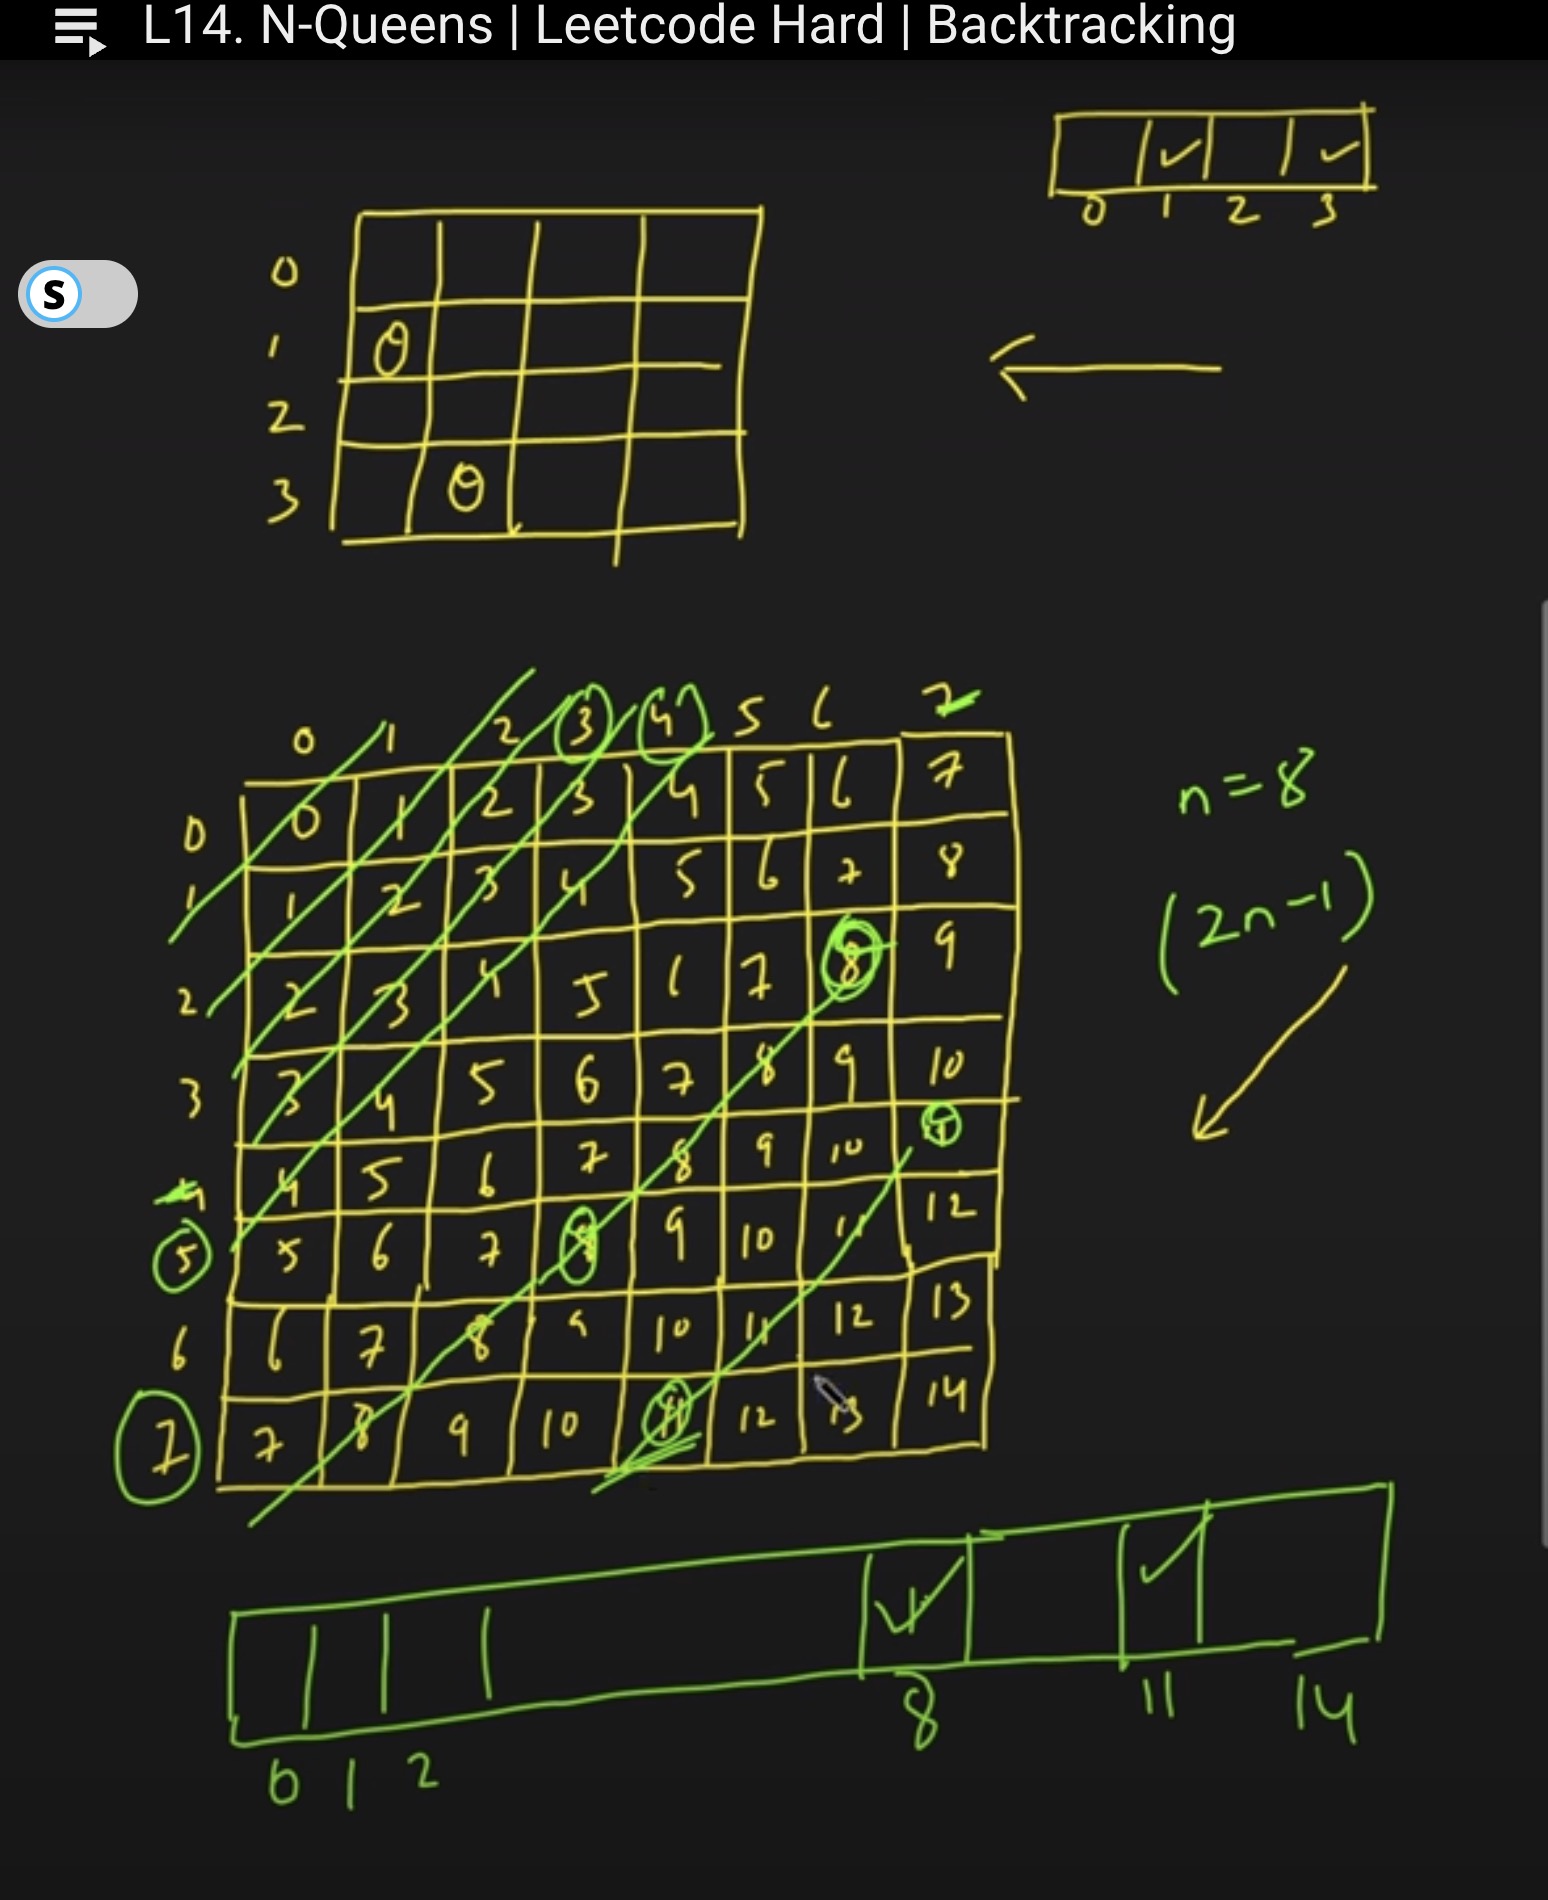 L14. N-Queens | Leetcode Hard | Backtracking
0 1 2 3
S
0
1
2
3
0 1 2 3 4 5 6 7
0 0 1 2 3 4 5 6 7
n=8
1 1 2 3 4 5 6 7 8
(2n-1)
2 2 3 4 5 6 7 8 9
3 3 4 5 6 7 8 9 10
4 4 5 6 7 8 9 10
5 5 6 7 8 9 10 11 12
6 6 7 8 9 10 11 12 13
7 7 8 9 10 11 12 13 14
8 11 14
0 1 2